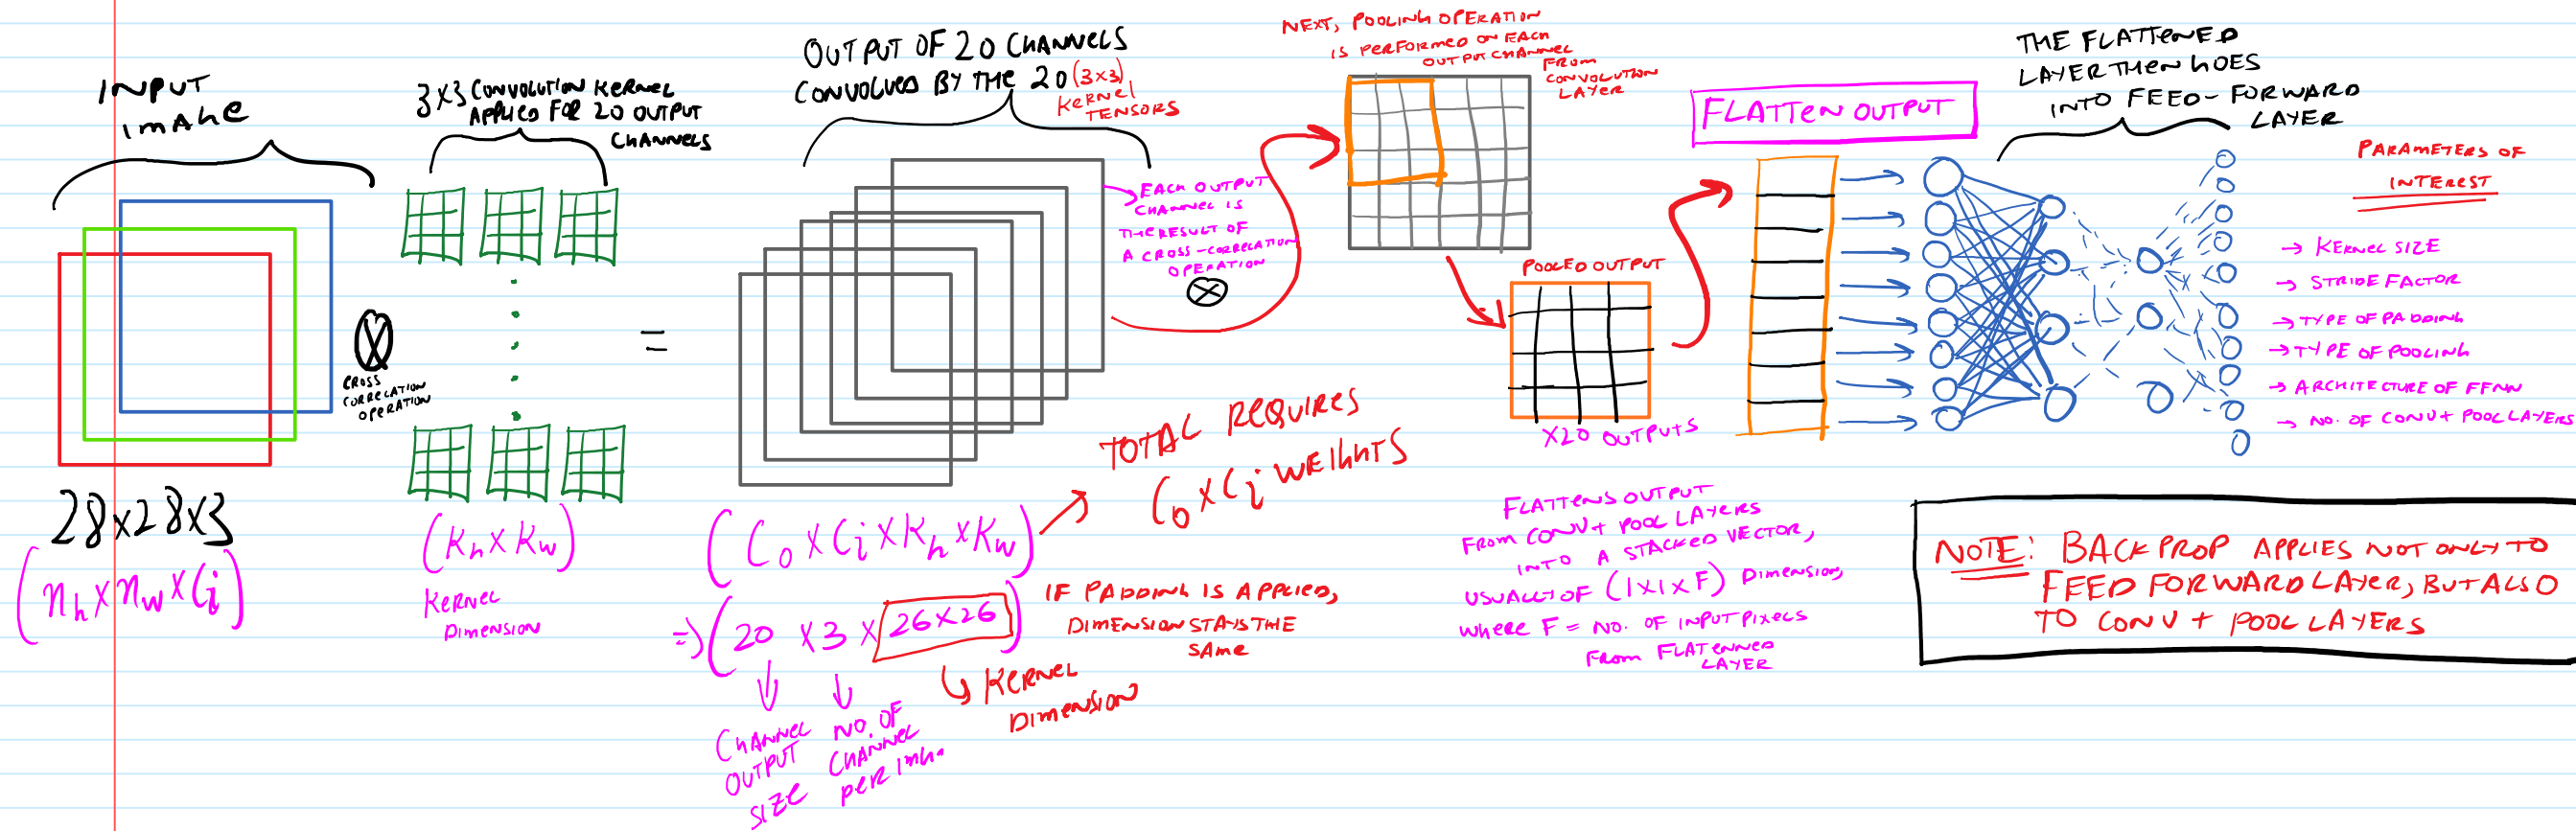 INPUT
IMAGE
28x28x3
(nh x nw x Ci)
CROSS
CORRELATION
OPERATION
3x3 CONVOLUTION KERNEL
APPLIED FOR 20 OUTPUT
CHANNELS
(Kh x Kw)
KERNEL
DIMENSION
=
OUTPUT OF 20 CHANNELS
CONVOLVED BY THE 20 (3x3)
KERNEL
TENSORS
EACH OUTPUT
CHANNEL IS
THE RESULT OF
A CROSS-CORRELATION
OPERATION
(Co x Ci x Kh x Kw)
TOTAL REQUIRES
Co x Ci WEIGHTS
=> (20 x 3 x 26x26)
IF PADDING IS APPLIED,
DIMENSION STAYS THE
SAME
KERNEL
DIMENSION
CHANNEL
OUTPUT
SIZE
NO. OF
CHANNEL
PER IMG.
NEXT, POOLING OPERATION
IS PERFORMED ON EACH
OUTPUT CHANNEL
FROM
CONVOLUTION
LAYER
POOLED OUTPUT
X20 OUTPUTS
FLATTEN OUTPUT
FLATTENS OUTPUT
FROM CONV + POOL LAYERS
INTO A STACKED VECTOR,
USUALLY OF (1x1xF) DIMENSION,
WHERE F = NO. OF INPUT PIXELS
FROM FLATENNED
LAYER
THE FLATTENED
LAYER THEN GOES
INTO FEED-FORWARD
LAYER
PARAMETERS OF
INTEREST
→ KERNEL SIZE
→ STRIDE FACTOR
→ TYPE OF PADDING
→ TYPE OF POOLING
→ ARCHITECTURE OF FFNN
→ NO. OF CONV + POOL LAYERS
NOTE: BACKPROP APPLIES NOT ONLY TO
FEED FORWARD LAYER, BUT ALSO
TO CONV + POOL LAYERS